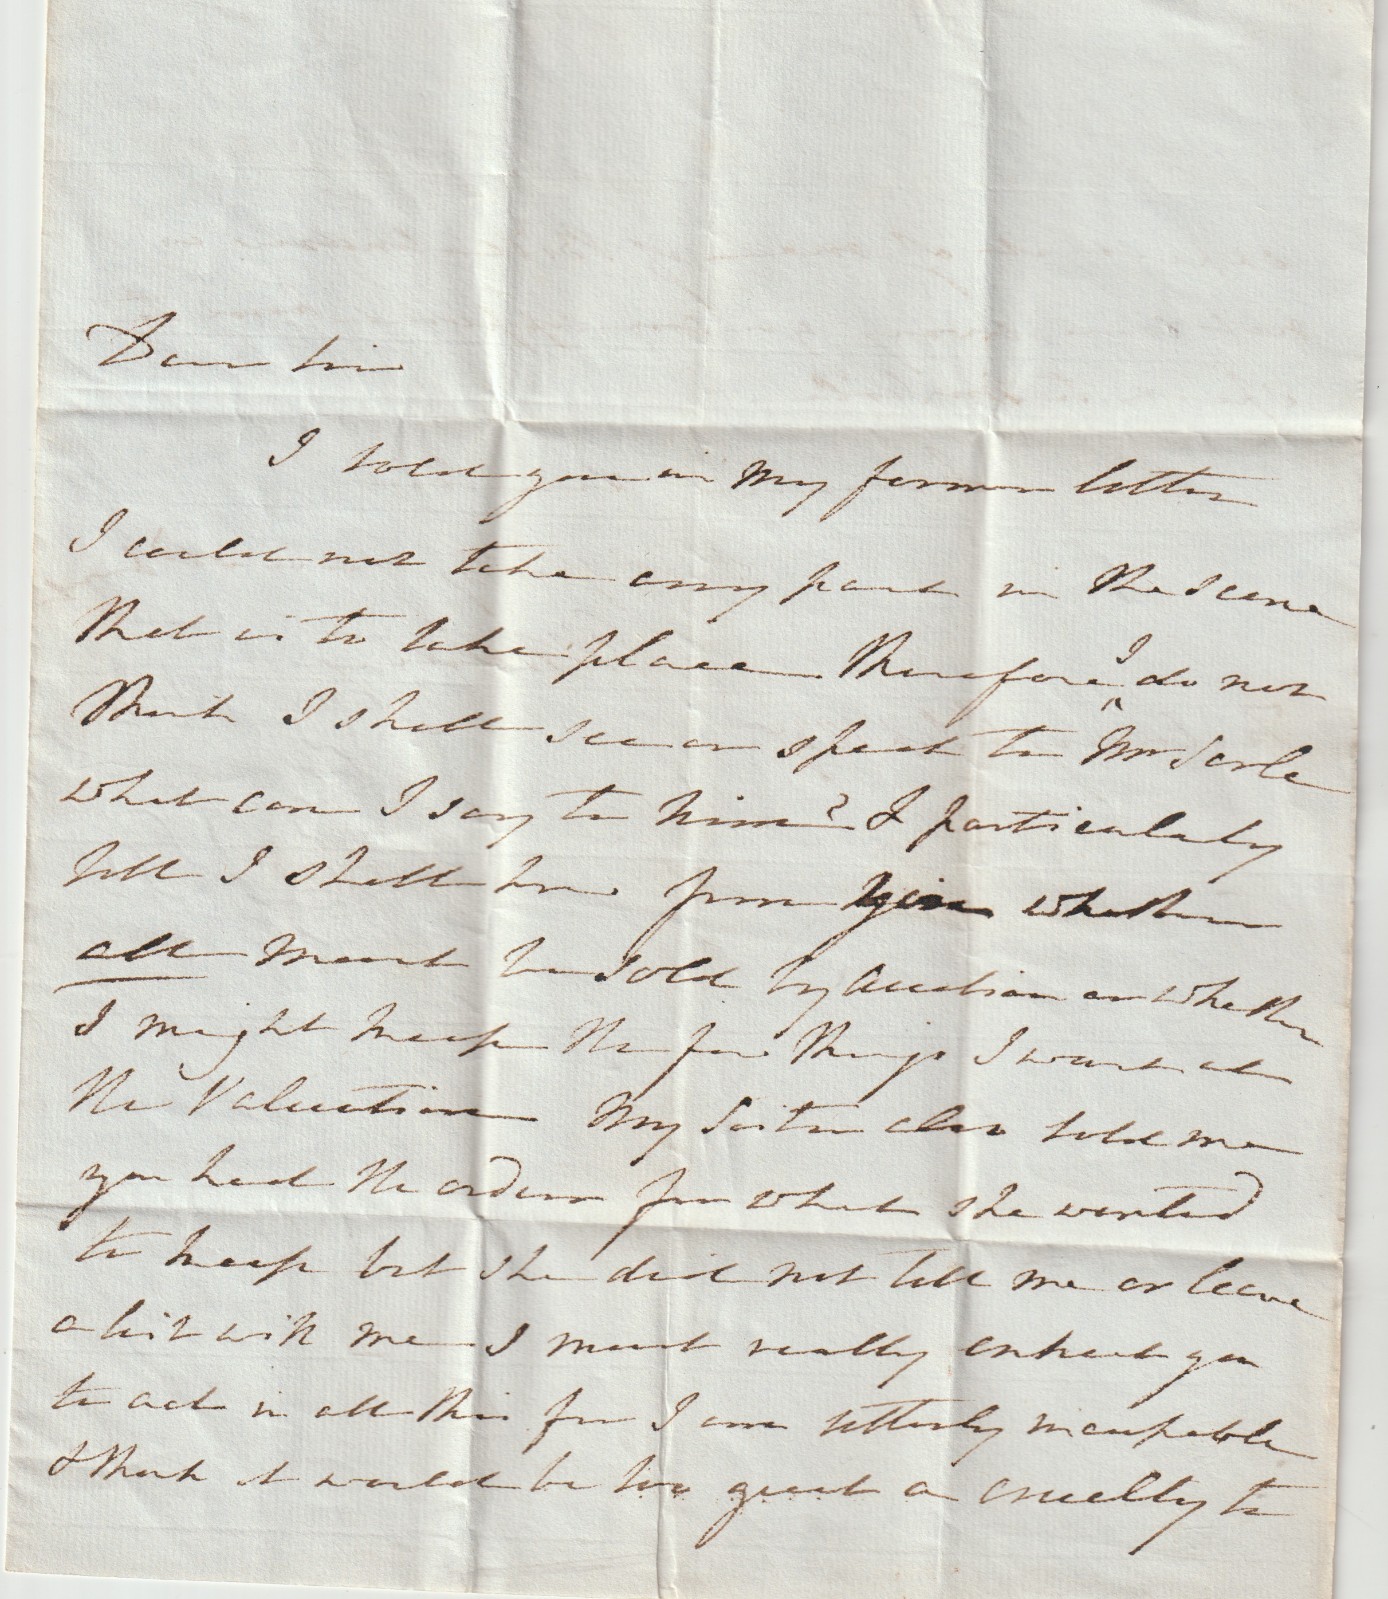 Dear Sir
I told you in my former letter
I could not take any part in the scene
that is to take place therefore I do not
think I shall see or speak to Mr Searle
what can I say to him? I particularly
tell I shall hear from you whether
all must be sold by Auction or whether
I might keep the few things I want at
the Valuation My Sister also told me
you had the orders for what she wanted
to keep but she did not tell me or leave
a list with me I must really entreat you
to act in all this for I am utterly incapable
& think it would be too great a cruelty to